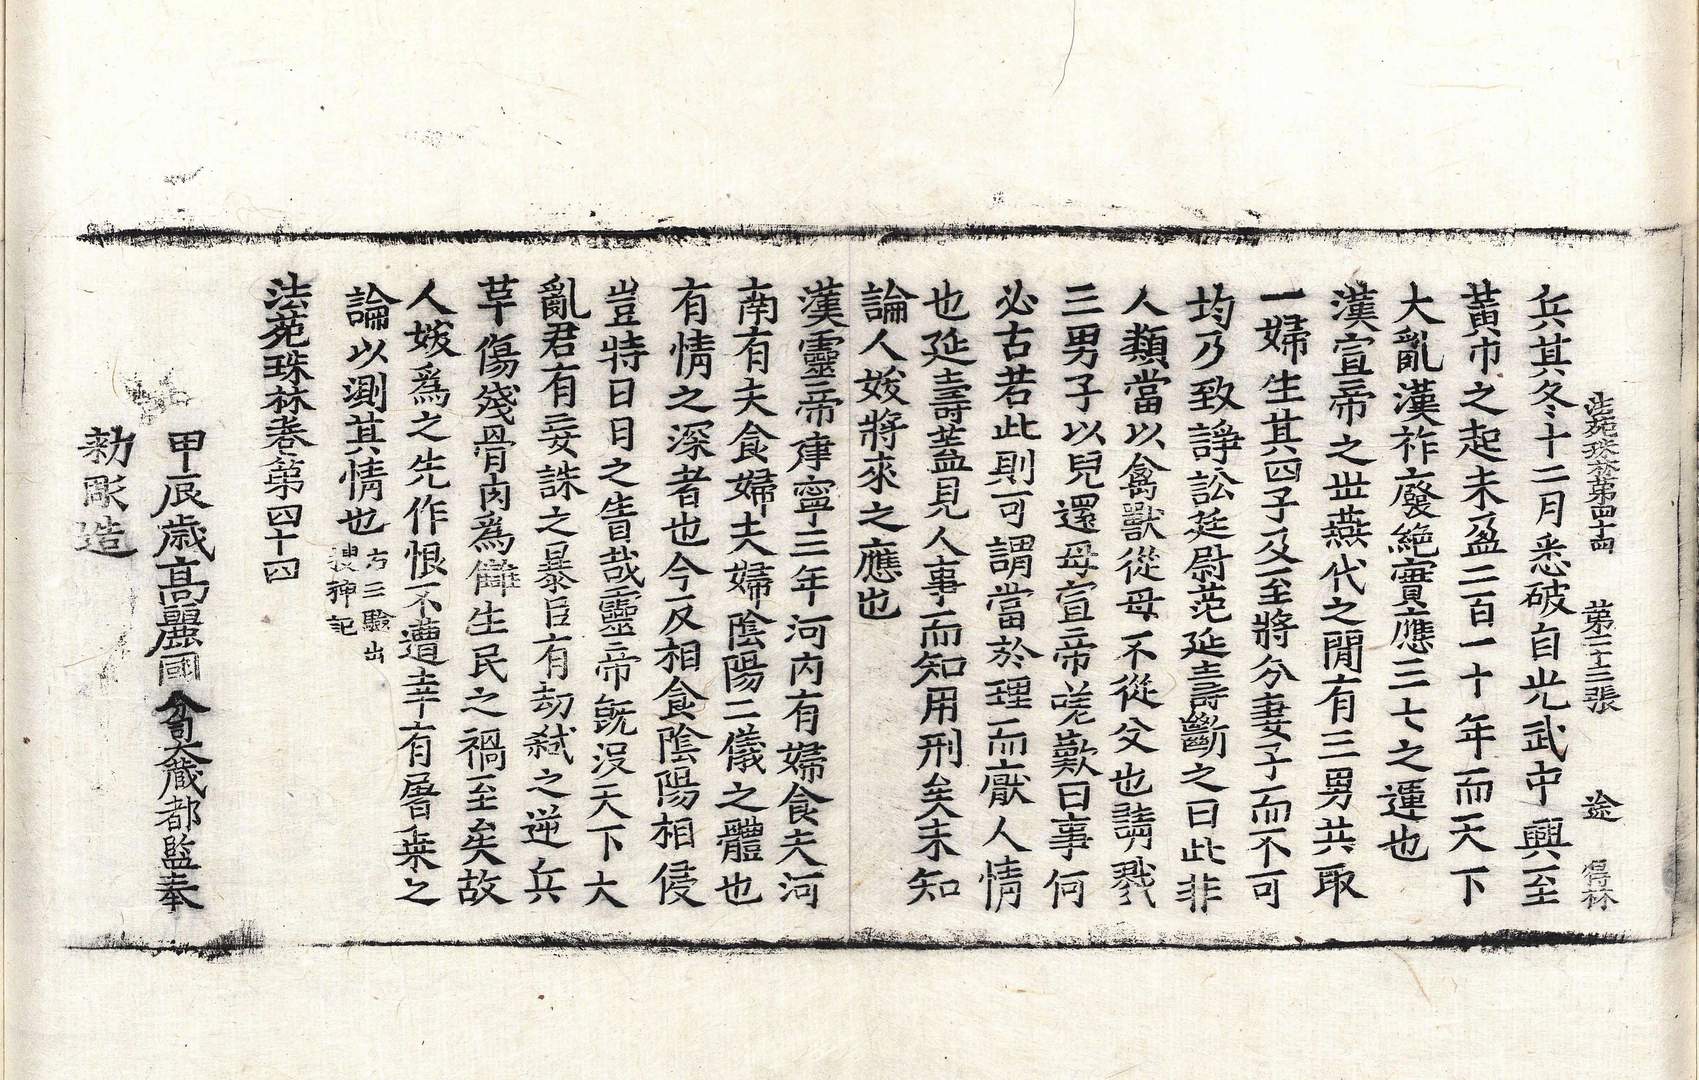 法苑珠林第四十四　第二十三張　途
兵其冬十二月悉破自光武中興至
黃巾之起未盈二百一十年而天下
大亂漢祚廢絕實應三七之運也
漢宣帝之世燕代之閒有三男共取
一婦生其四子及至將分妻子而不可
均乃致諍訟廷尉范延壽斷之曰此非
人類當以禽獸從母不從父也請戮
三男子以兒還母宣帝嗟歎曰事何
必古若此則可謂當於理而厭人情
也延壽盖見人事而知用刑矣未知
論人妖將來之應也
漢靈帝建寧三年河內有婦食夫河
南有夫食婦夫婦陰陽二儀之體也
有情之深者也今反相食陰陽相侵
豈特日月之眚哉靈帝旣沒天下大
亂君有妄誅之暴臣有劫弑之逆兵
革傷殘骨肉爲讎生民之禍至矣故
人妖爲之先作恨不遭辛有屠乗之
論以測其情也右三驗出搜神記
法苑珠林卷第四十四
甲辰歲高麗國分司大藏都監奉
勅彫造